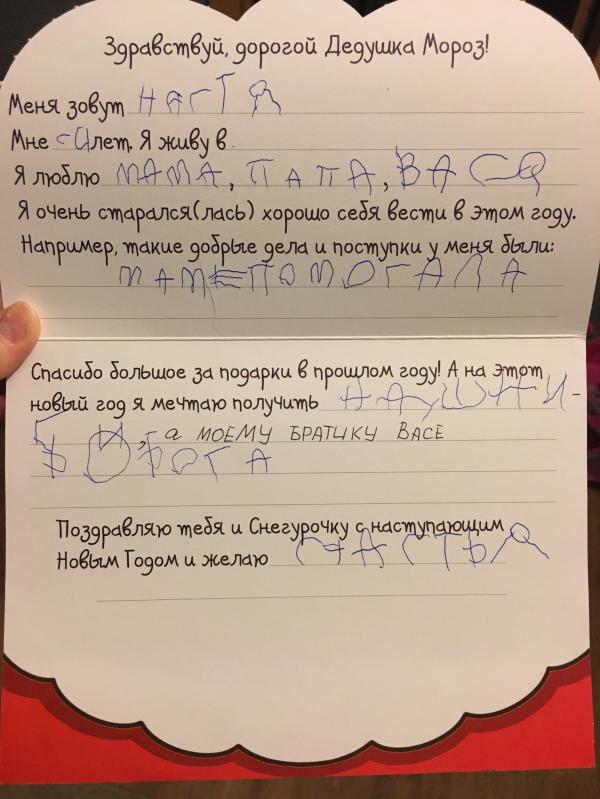 Здравствуй, дорогой Дедушка Мороз!
Меня зовут НАСТЯ
Мне лет. Я живу в
Я люблю МАМА, ПАПА, ВАСЯ
Я очень старался(лась) хорошо себя вести в этом году.
Например, такие добрые дела и поступки у меня были:
МАМЕ ПОМОГАЛА
Спасибо большое за подарки в прошлом году! А на этот
новый год я мечтаю получить НАУШНИ-
КИ, а МОЕМУ БРАТИКУ ВАСЕ
Поздравляю тебя и Снегурочку с наступающим
Новым Годом и желаю СЧАСТЬЯ